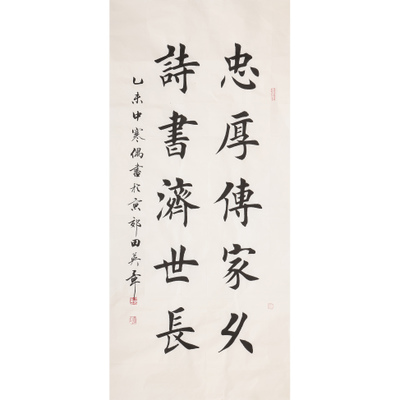 忠厚傳家久
詩書濟世長
乙未中寒偶書於京都田英章